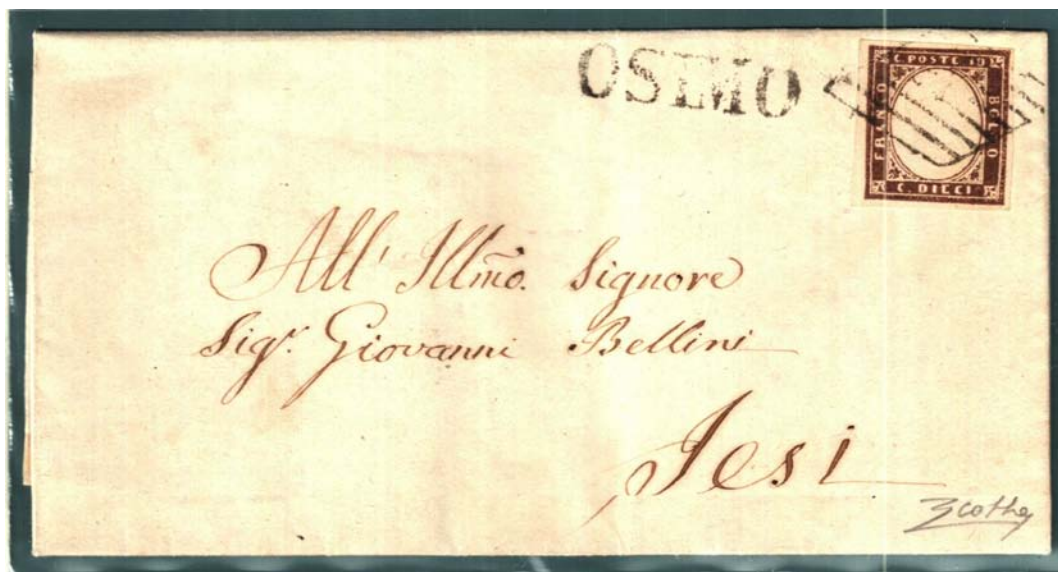 OSIMO
C. POSTE 10
FRANCO
BOLLO
C. DIECI
All' Illm̃o. Signore
Sigr. Giovanni Bellini
Jesi